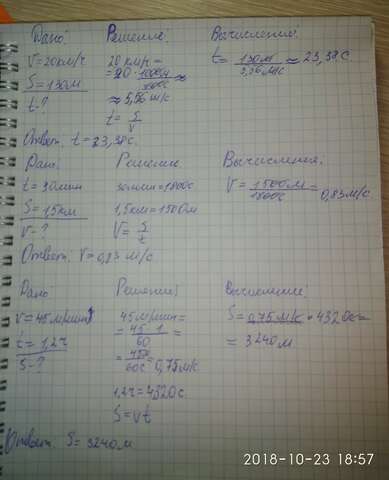 Дано: Решение: Вычисления:
V=20км/ч 20 км/ч = t = 130м / 5,56м/с ≈ 23,38с.
S=130м =20 · 1000м / 3600с ≈
t-? ≈ 5,56 м/с
t = S / V
Ответ: t=23,38с.
Дано: Решение: Вычисления:
t=30мин 30мин=1800с V = 1500м / 1800с = 0,83м/с.
S=1,5км 1,5км=1500м
V-? V = S / t
Ответ: V=0,83 м/с
Дано Решение: Вычисление:
V=45м/мин 45м/мин= S=0,75м/с · 4320с=
t=1,2ч = 45·1 / 60 = = 3240м
S-? = 45м / 60с = 0,75м/с
1,2ч=4320с
S=Vt
Ответ: S=3240м
2018-10-23 18:57